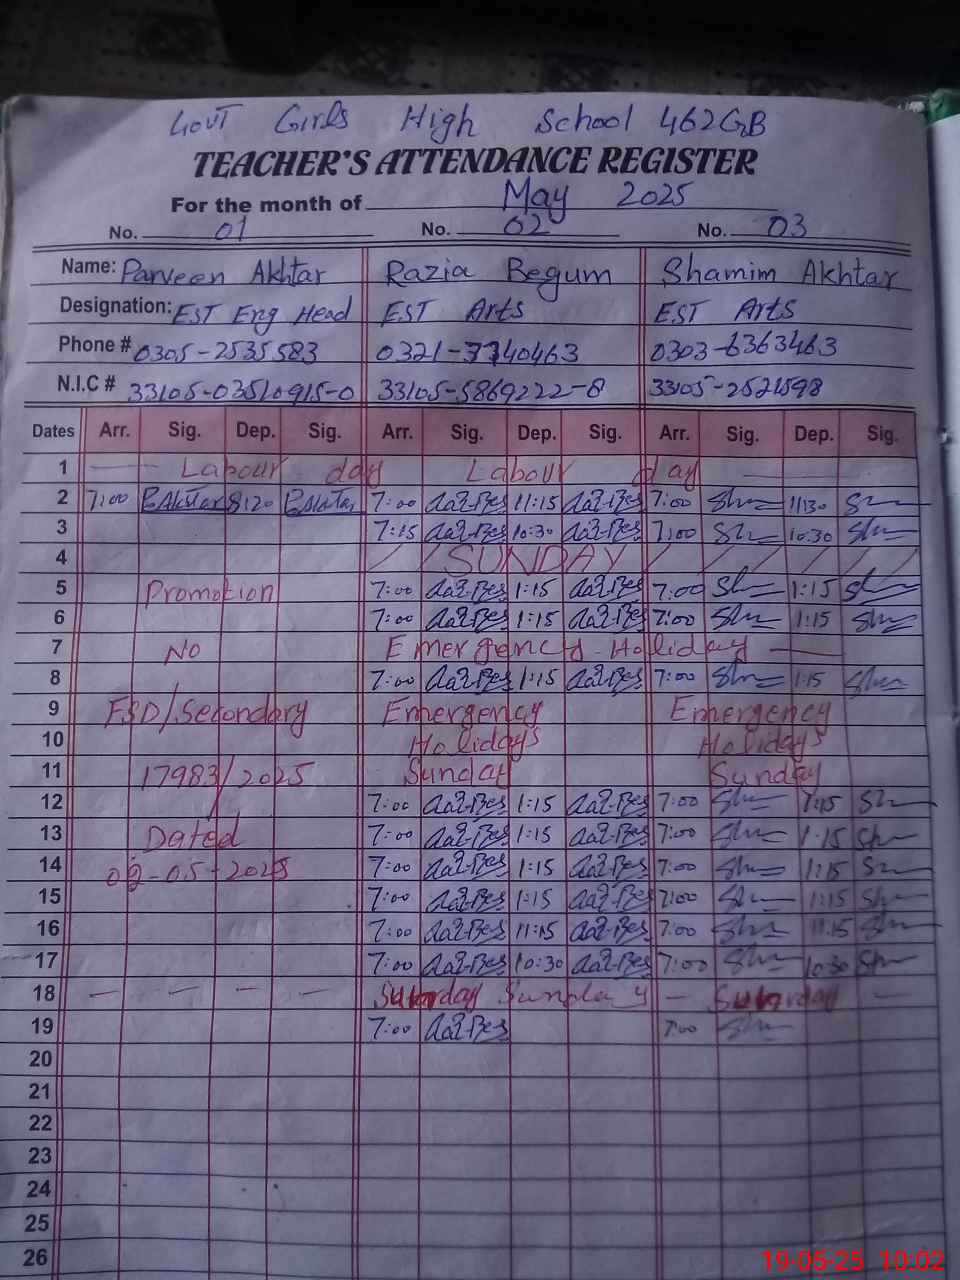 Govt Girls High School 462GB
TEACHER'S ATTENDANCE REGISTER
For the month of May 2025
No. 01 No. 02 No. 03
Name: Parveen Akhtar Razia Begum Shamim Akhtar
Designation: EST Eng Head EST Arts EST Arts
Phone # 0305-2535583 0321-7740463 0303-6363463
N.I.C # 33105-03510915-0 33105-5869222-8 33105-2521598
Dates Arr. Sig. Dep. Sig. Arr. Sig. Dep. Sig. Arr. Sig. Dep. Sig.
1 Labour day Labour day
2 7:00 P.Akhtar 8:20 P.Akhtar 7:00 11:15 7:00 11:30
3 7:15 10:30 7:00 10:30
4 SUNDAY
5 Promotion 7:00 1:15 7:00 1:15
6 7:00 1:15 7:00 1:15
7 No Emergency Holiday
8 7:00 1:15 7:00 1:15
9 FSD/Secondary Emergency Emergency
10 Holidays Holidays
11 17983/2025 Sunday Sunday
12 7:00 1:15 7:00 1:15
13 Dated 7:00 1:15 7:00 1:15
14 02-05-2025 7:00 1:15 7:00 1:15
15 7:00 1:15 7:00 1:15
16 7:00 11:15 7:00 11:15
17 7:00 10:30 7:00 10:30
18 Sunday
19 7:00 7:00
20
21
22
23
24
25
26
19-05-25 10:02